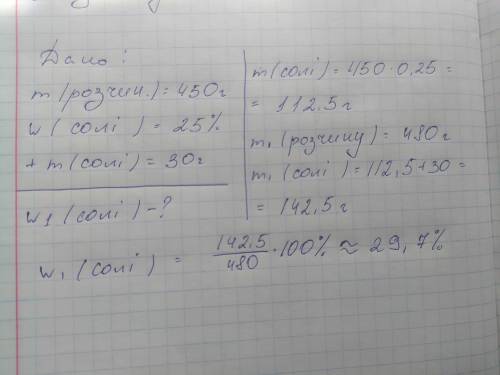 Дано:
m (розчин.) = 450г
w (солі) = 25%
+ m(солі) = 30г
w1 (солі) - ?
m(солі) = 450·0,25 =
= 112.5г
m1 (розчину) = 480г
m1 (солі) = 112,5+30 =
= 142,5г
w1 (солі) = 142,5/480 · 100% ≈ 29,7%